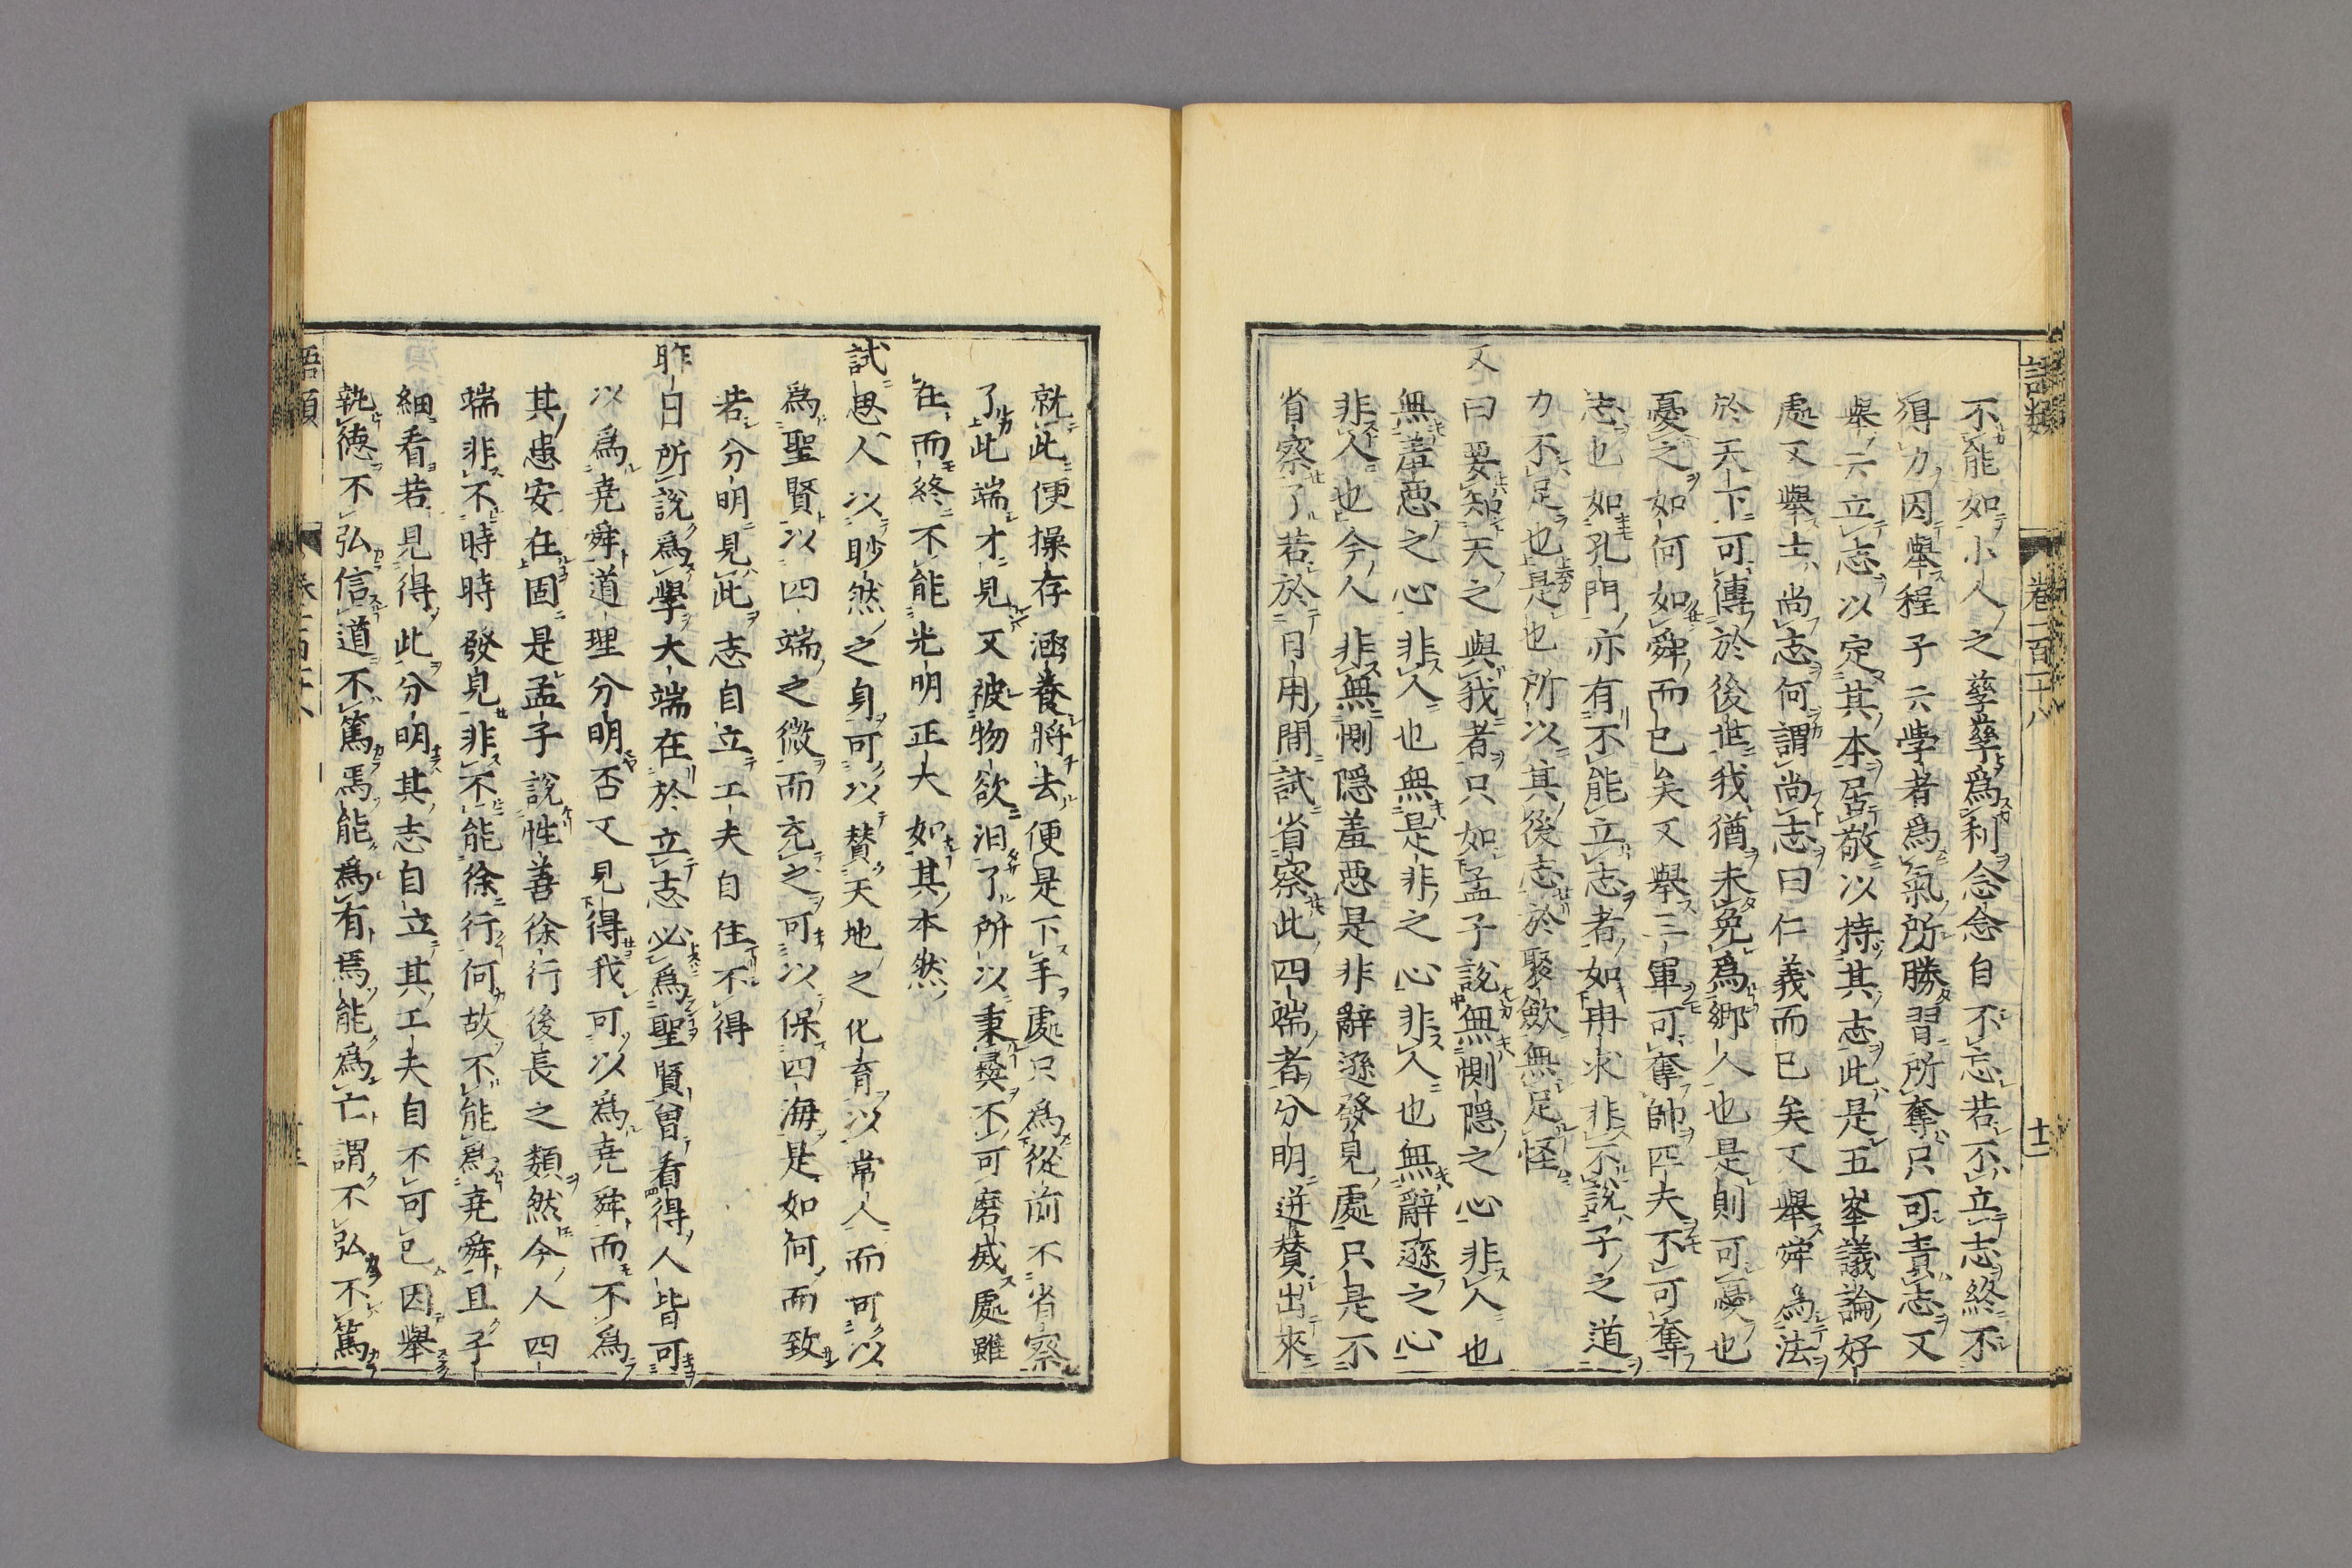 語類 卷一百一十八 十二
不能如小人之孳孳爲利念念自不忘若不立志終不
得力因舉程子云學者爲氣所勝習所奪只可責志又
舉云立志以定其本居敬以持其志此是五峯議論好
處又舉士尚志何謂尚志曰仁義而已矣又舉舜爲法
於天下可傳於後世我猶未免爲鄉人也是則可憂也
憂之如何如舜而已矣又舉三軍可奪帥匹夫不可奪
志也如孔門亦有不能立志者如冉求非不說子之道
力不足也是也所以其後志於聚歛無足怪
又曰要知天之與我者只如孟子說無惻隱之心非人也
無羞惡之心非人也無是非之心非人也無辭遜之心
非人也今人非無惻隱羞惡是非辭遜發見處只是不
省察了若於日用間試省察此四端者分明迸賛出來
就此便操存涵養將去便是下手處只爲從前不省察
了此端才見又被物欲汩了所以秉彞不可磨滅處雖
在而終不能光明正大如其本然
試思人以眇然之身可以賛天地之化育以常人而可以
爲聖賢以四端之微而充之可以保四海是如何而致
若分明見此志自立工夫自住不得
昨日所說爲學大端在於立志必爲聖賢曾看得人皆可
以爲堯舜道理分明否又見得我可以爲堯舜而不爲
其患安在固是孟子說性善徐行後長之類然今人四
端非不時時發見非不能徐行何故不能爲堯舜且子
細看若見得此分明其志自立其工夫自不可已因舉
執德不弘信道不篤焉能爲有焉能爲亡謂不弘不篤
語類